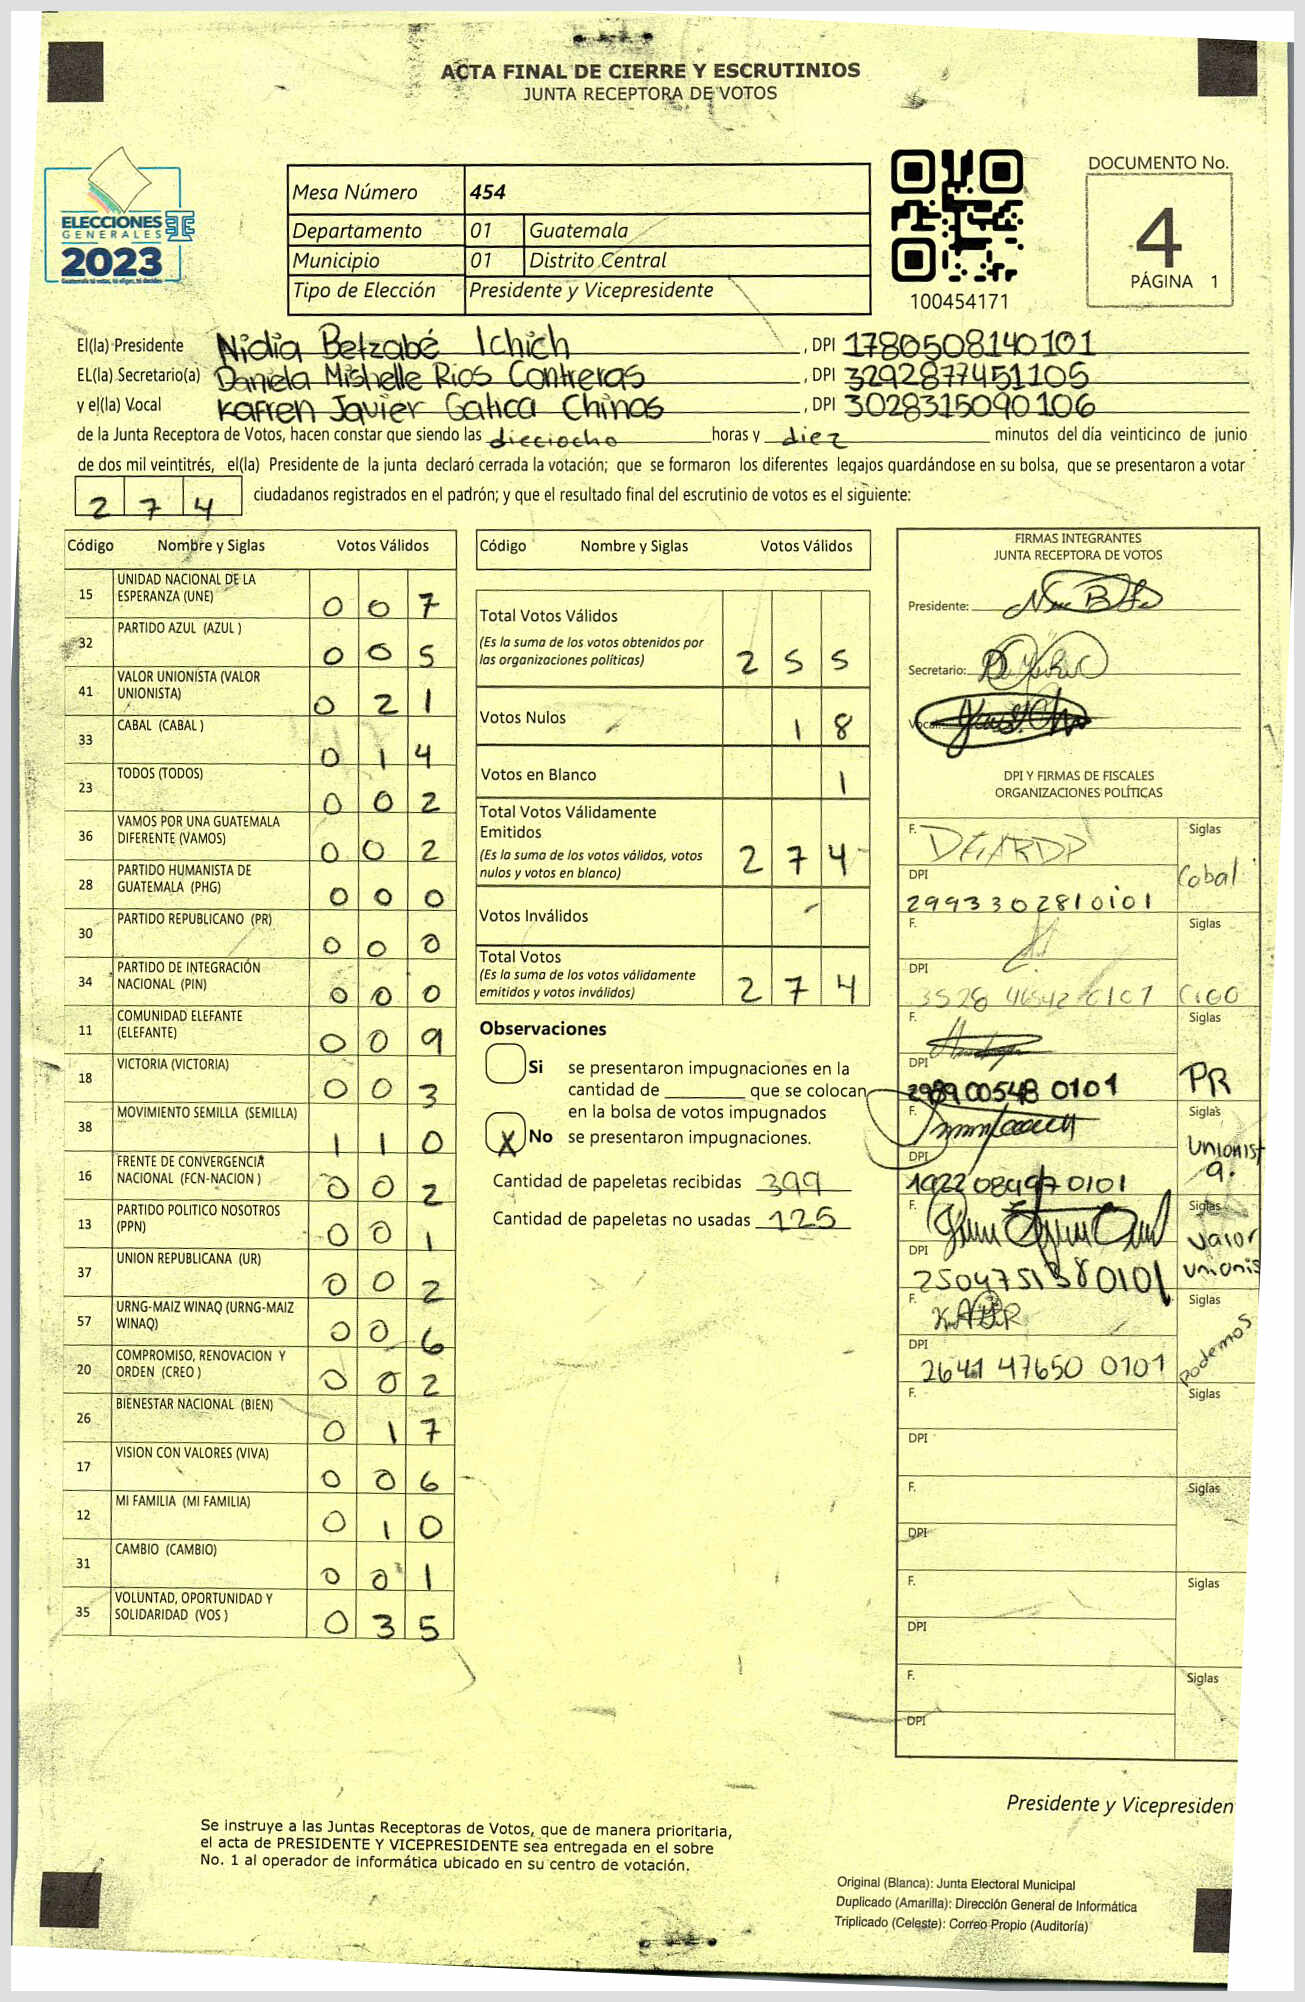 ACTA FINAL DE CIERRE Y ESCRUTINIOS
JUNTA RECEPTORA DE VOTOS
ELECCIONES
GENERALES
2023
Guatemala tú votas, tú eliges, tú decides
Mesa Número 454
Departamento 01 Guatemala
Municipio 01 Distrito Central
Tipo de Elección Presidente y Vicepresidente
100454171
DOCUMENTO No.
4
PÁGINA 1
El(la) Presidente Nidia Betzabé Ichich, DPI 1780508140101
EL(la) Secretario(a) Daniela Mishelle Rios Contreras, DPI 3292877451105
y el(la) Vocal Karren Javier Gatica Chinos, DPI 3028315090106
de la Junta Receptora de Votos, hacen constar que siendo las dieciocho horas y diez minutos del día veinticinco de junio
de dos mil veintitrés, el(la) Presidente de la junta declaró cerrada la votación; que se formaron los diferentes legajos quardándose en su bolsa, que se presentaron a votar
274 ciudadanos registrados en el padrón; y que el resultado final del escrutinio de votos es el siguiente:
Código Nombre y Siglas Votos Válidos
15 UNIDAD NACIONAL DE LA ESPERANZA (UNE) 007
32 PARTIDO AZUL (AZUL ) 005
41 VALOR UNIONISTA (VALOR UNIONISTA) 021
33 CABAL (CABAL ) 014
23 TODOS (TODOS) 002
36 VAMOS POR UNA GUATEMALA DIFERENTE (VAMOS) 002
28 PARTIDO HUMANISTA DE GUATEMALA (PHG) 000
30 PARTIDO REPUBLICANO (PR) 000
34 PARTIDO DE INTEGRACIÓN NACIONAL (PIN) 000
11 COMUNIDAD ELEFANTE (ELEFANTE) 009
18 VICTORIA (VICTORIA) 003
38 MOVIMIENTO SEMILLA (SEMILLA) 110
16 FRENTE DE CONVERGENCIA NACIONAL (FCN-NACION ) 002
13 PARTIDO POLITICO NOSOTROS (PPN) 001
37 UNION REPUBLICANA (UR) 002
57 URNG-MAIZ WINAQ (URNG-MAIZ WINAQ) 006
20 COMPROMISO, RENOVACION Y ORDEN (CREO ) 002
26 BIENESTAR NACIONAL (BIEN) 017
17 VISION CON VALORES (VIVA) 006
12 MI FAMILIA (MI FAMILIA) 010
31 CAMBIO (CAMBIO) 001
35 VOLUNTAD, OPORTUNIDAD Y SOLIDARIDAD (VOS ) 035
Código Nombre y Siglas Votos Válidos
Total Votos Válidos
(Es la suma de los votos obtenidos por las organizaciones políticas) 255
Votos Nulos 18
Votos en Blanco 1
Total Votos Válidamente Emitidos
(Es la suma de los votos válidos, votos nulos y votos en blanco) 274
Votos Inválidos -
Total Votos
(Es la suma de los votos válidamente emitidos y votos inválidos) 274
Observaciones
Si se presentaron impugnaciones en la
cantidad de ________ que se colocan
en la bolsa de votos impugnados
X No se presentaron impugnaciones.
Cantidad de papeletas recibidas 399
Cantidad de papeletas no usadas 125
FIRMAS INTEGRANTES
JUNTA RECEPTORA DE VOTOS
Presidente:
Secretario:
Vocal:
DPI Y FIRMAS DE FISCALES
ORGANIZACIONES POLÍTICAS
F. Siglas
DPI 2993302810101 Cabal
F. Siglas
DPI
F. Siglas
DPI 0101 PR
F. Siglas
DPI 1922089970101 Unionista.
F. Siglas
DPI 2504751380101 Valor Unionis
F. Siglas
DPI 2641 47650 0101 Podemos
F. Siglas
DPI
F. Siglas
DPI
F. Siglas
DPI
F. Siglas
DPI
Presidente y Vicepresiden
Se instruye a las Juntas Receptoras de Votos, que de manera prioritaria,
el acta de PRESIDENTE Y VICEPRESIDENTE sea entregada en el sobre
No. 1 al operador de informática ubicado en su centro de votación.
Original (Blanca): Junta Electoral Municipal
Duplicado (Amarilla): Dirección General de Informática
Triplicado (Celeste): Correo Propio (Auditoría)